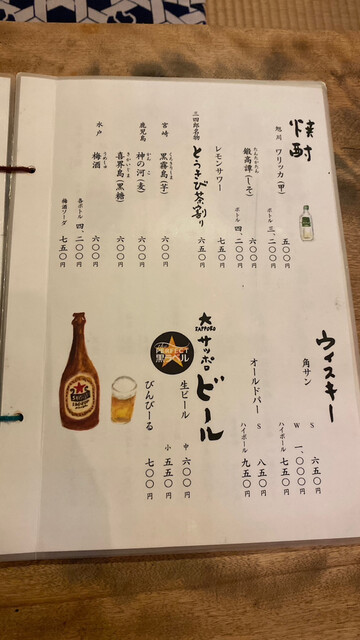 焼酎
旭川 ワリッカ(甲) 五〇〇円
ボトル 三、二〇〇円
鍛高譚(しそ) 六〇〇円
たんたかたん
ボトル 四、二〇〇円
レモンサワー 七五〇円
三四郎名物 とうきび茶割り 六五〇円
宮崎 黒霧島(芋) 六〇〇円
くろきりしま
鹿児島 神の河(麦) 六〇〇円
かんのこ
喜界島(黒糖) 六〇〇円
きかいじま
水戸 梅酒 六〇〇円
うめしゅ
各ボトル 四、二〇〇円
梅酒ソーダ 七五〇円
ウィスキー
角サン S 六五〇円
W 一、〇〇〇円
ハイボール 七五〇円
オールドパー S 八五〇円
ハイボール 九五〇円
SAPPORO
サッポロビール
PERFECT
黒ラベル
生ビール 中 六〇〇円
小 五五〇円
びんびーる 七〇〇円